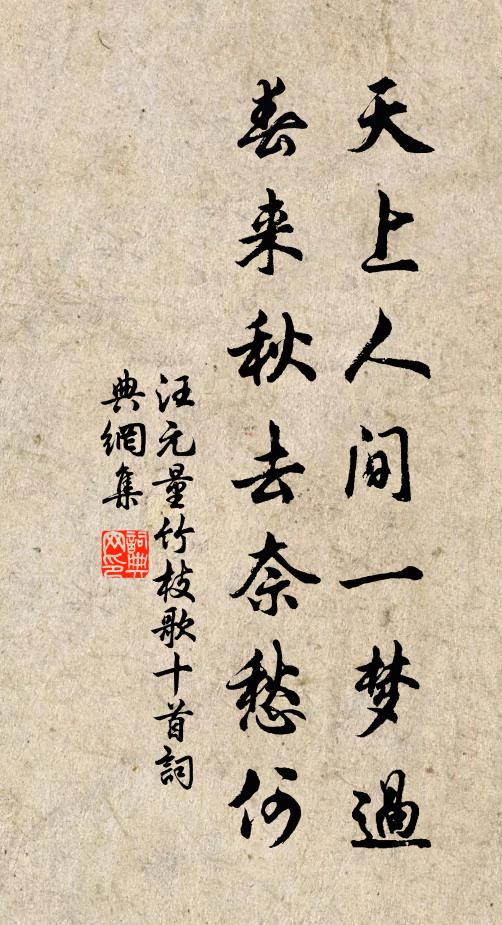 天上人间一梦過
春来秋去奈愁何
汪元量竹枝歌十首詞
典網集
詞典網印